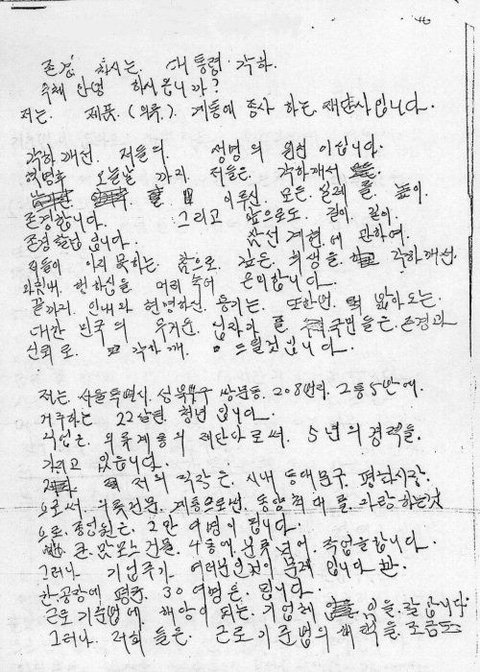 존경 하시는. 대통령 각하.
옥체 안녕 하시옵니까?
저는. 제품. (의류). 계통에 종사 하는 재단사입니다.
각하께선. 저들의. 생명의 원선 이십니다.
혁명후 오늘날 까지. 저들은. 각하께서
이루신. 모든. 실제를. 높이.
존경합니다. 그리고 앞으로도. 길이. 길이.
존경할겁 입니다. 삼선 개헌에 관하여.
저들이 아지 못하는. 참으로. 깊은. 희생을. 각하께선.
마침내. 헌하심을. 머리 숙여 은미합니다.
끝까지. 인내와 현명하신. 용기는. 또한번. 밝아오는.
대한 민국의 무거운. 십자가를. 국민들은. 존경과
신뢰로. 각하께. 드릴것입니다.
저는. 서울특별시. 성북구 쌍문동. 208번지. 2통 5반에.
거주하는 22살된. 청년 입니다.
직업은. 의류계통의 재단사로써. 5년의 경력을.
가지고 있읍니다.
저의 직장은. 시내 동대문구. 평화시장.
으로써. 의류전문. 계통으로썬. 동양 최대를. 자랑 하는것
으로. 종업원은. 2만 여명이 됩니다.
큰. 맘모스 건물. 4동에 분류 되어. 작업을합니다.
그러나 기업주가 여러분인것이 문제 입니다만.
한공장에 평균. 30여명은. 됩니다.
근로 기준법에. 해당이 되는. 기업체 임을. 잘 압니다.
그러나. 저희 들은. 근로기준법의 혜택을. 조금도